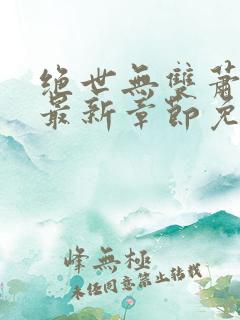 絕世無雙蕭
最新章節免
峰無極
未經同意禁止轉載